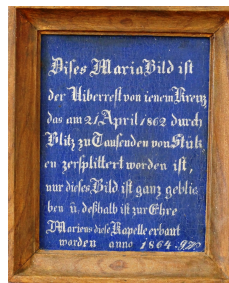 Dises Maria Bild ist
der Uiberrest von ienem Kreuz
das am 21 April 1862 durch
Blitz zu Tausenden von Stük
en zersplittert worden ist,
nur dieses Bild ist ganz geblie
ben ü. deßhalb ist zur Ehre
Mariens diese Kapelle erbaut
worden anno 1864.